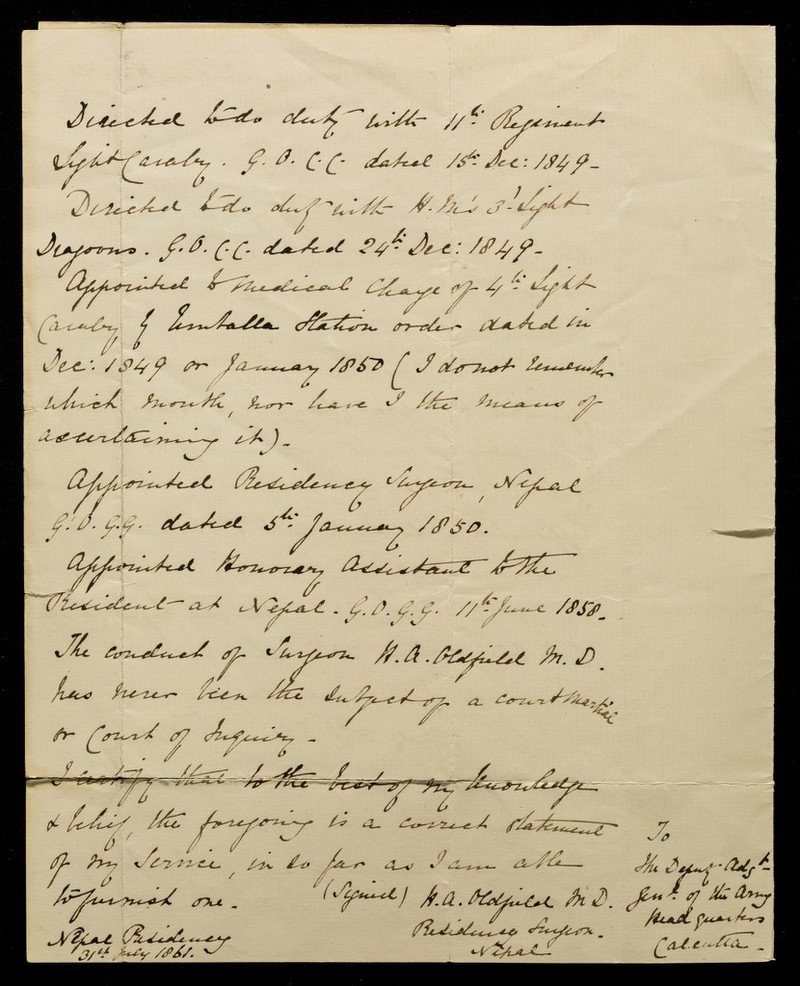 Directed to do duty with 11th Regiment
Light Cavalry. G. O. C. C. dated 15th Dec: 1849 -
Directed to do duty with H. M's 3d Light
Dragoons. G. O. C. C. dated 24th Dec: 1849 -
Appointed to medical charge of 4th Light
Cavalry by Umballa Station order dated in
Dec: 1849 or January 1850 (I do not remember
which month, nor have I the means of
ascertaining it) -
Appointed Residency Surgeon, Nepal
G. O. G. G. dated 5th January 1850.
Appointed Honorary Assistant to the
Resident at Nepal. G. O. G. G. 11th June 1858.
The conduct of Surgeon H. A. Oldfield M. D.
has never been the subject of a court Martial
or Court of Inquiry -
I certify that to the best of my knowledge
& belief, the foregoing is a correct statement
of my Service, in so far as I am able
to furnish one.
(Signed) H. A. Oldfield M D.
Residency Surgeon.
Nepal
Nepal Residency
31st July 1861.
To
The Deputy Adjt
Genl. of the Army
Head Quarters
Calcutta -